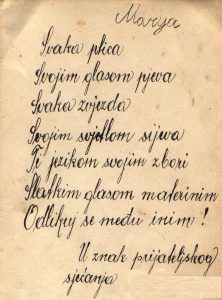 Marya
Svaka ptica
Svojim glasom pjeva
Svaka zvjezda
Svojim svjetlom sijeva
Ti jezikom svojim zbori
Slatkim glasom materinim
Odlikuj se među inim!
U znak prijateljskog
sjećanja